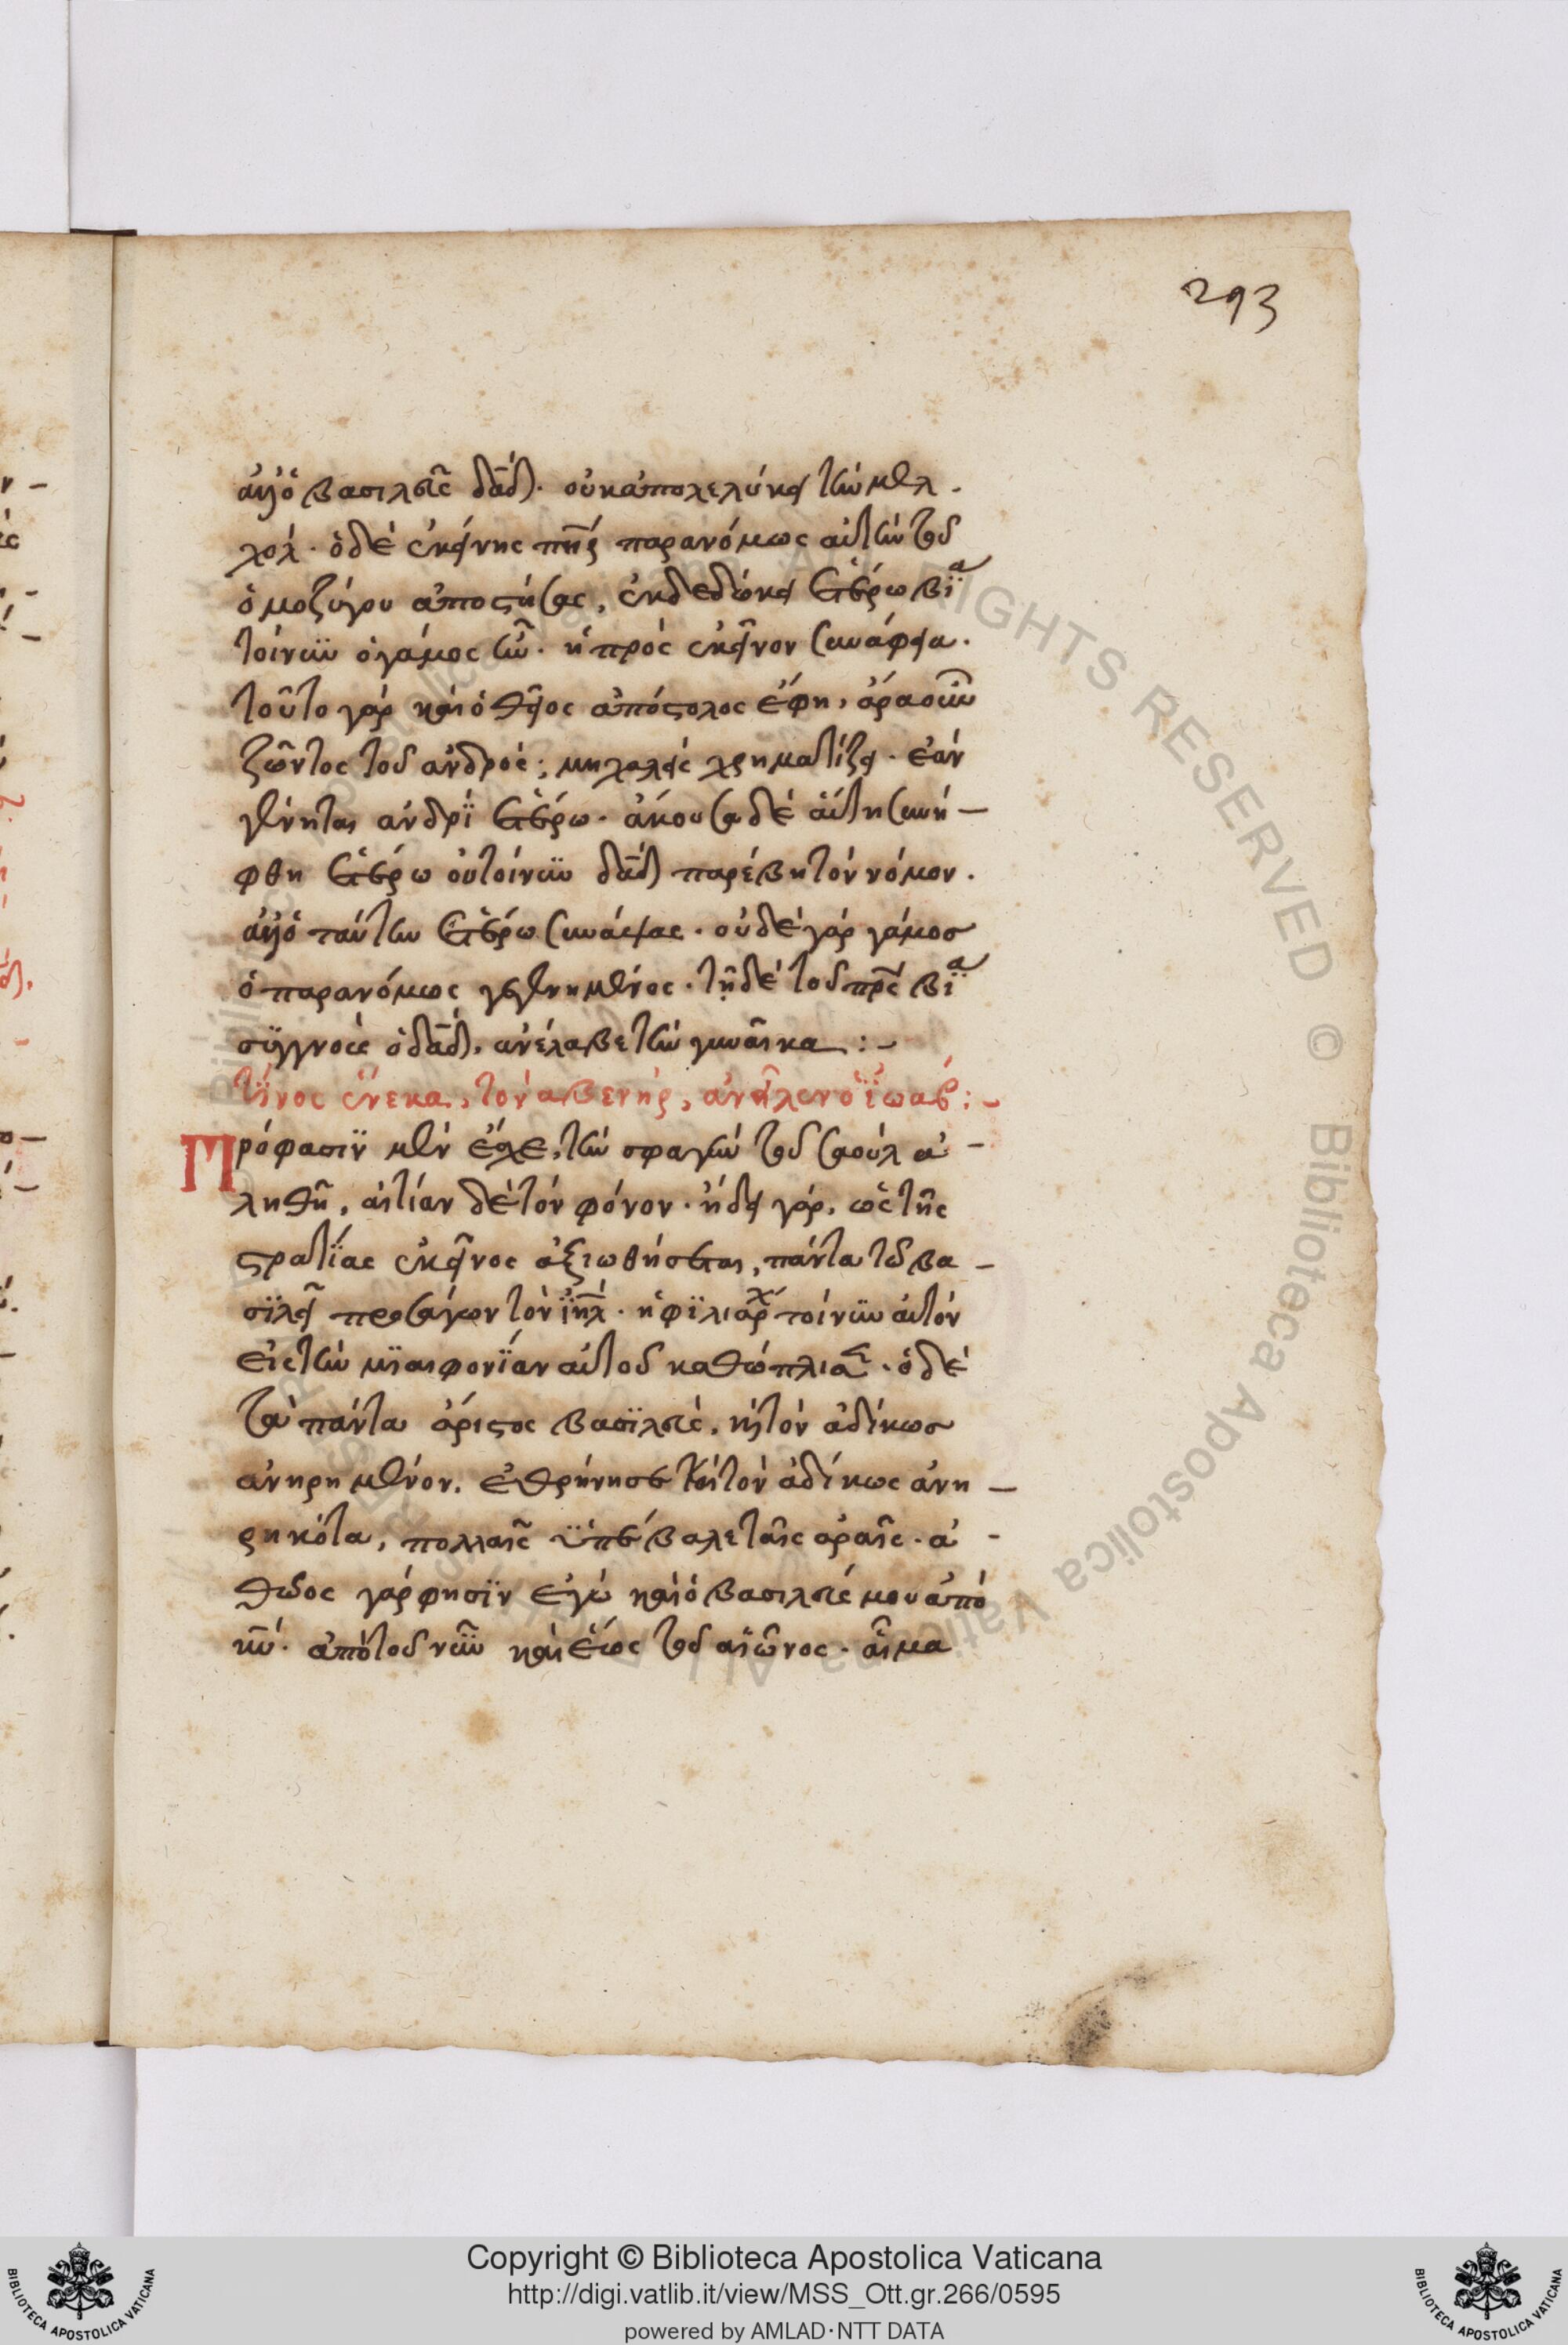 293
αὐτὸς ὁ βασιλεὺς δᾱδ. οὐκ ἀπολελύκει τὴν μελ
χόλ. ὁ δὲ ἐκείνης πη̄ρ παρανόμως αὐτὴν τοῦ
ὁμοζύγου ἀποστήσας, ἐκδεδώκει ἑτέρω βία
τοίνυν ὁ γάμος ἦν. ἡ πρὸς ἐκεῖνον συνάφεια.
τοῦτο γὰρ καὶ ὁ θεῖος ἀπόστολος ἔφη, ἄρα οὖν
ζῶντος τοῦ ἀνδρός; μηχαλὶς χρηματίζει. ἐὰν
γένηται ἀνδρϊ ἑτέρω. ἄκουσα δὲ αὕτη συνή-
φθη ἑτέρω οὐ τοίνυν δᾱδ παρέβη τὸν νόμον.
ἀλλ' ὁ ταύτην ἑτέρω συνάψας. οὐδὲ γὰρ γάμοσ
ὁ παρανόμως γεγενημένος. τῆ δὲ τοῦ πρ̄ς βία
συγγνοὺς ὁ δᾱδ, ἀνέλαβε τὴν γυναῖκα :-
τίνος ἕνεκα, τὸν αβενὴρ, ἀνεῖλεν ὁ ϊωάβ :-
Πρόφασϊν μὲν ἔσχε, τὴν σφαγὴν τοῦ σαοὺλ ἀ-
ληθῆ, αἰτίαν δὲ τὸν φόνον. ἤδει γὰρ, ὡς τῆς
στρατϊᾶς ἐκεῖνος ἀξιωθήσεται, πάντα τῶ βα-
σϊλεῖ προσάγων τὸν ϊη̄λ. ἡ φϊλιαρχ τοίνυν αὐτὸν
εἰς τὴν μϊαιφονΐαν αὐτοῦ καθώπλισε. ὁ δὲ
τὰ πάντα ἄριστος βασϊλεὺς, καὶ τὸν ἀδίκωσ
ἀνηρημένον, ἐθρήνησε καὶ τὸν ἀδίκως ἀνη-
ρηκότα, πολλαῖς ϋπέβαλε ταῖς ἀραῖς. ἀ-
θῶος γάρ φησϊν ἐγὼ καὶ ὁ βασιλεύς μου ἀπὸ
κῡ. ἀπὸ τοῦ νῦν καὶ ἕως τοῦ αἰῶνος. αἷμα
RIGHTS RESERVED © Biblioteca Apostolica Vaticana
Copyright © Biblioteca Apostolica Vaticana
http://digi.vatlib.it/view/MSS_Ott.gr.266/0595
powered by AMLAD·NTT DATA
BIBLIOTECA APOSTOLICA VATICANA
BIBLIOTECA APOSTOLICA VATICANA